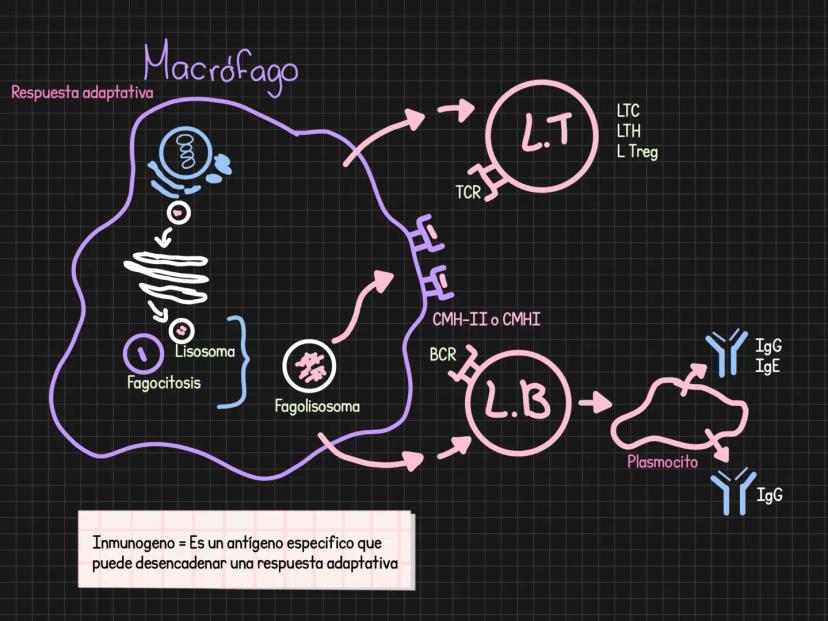 Macrófago
Respuesta adaptativa
L.T
LTC
LTH
L Treg
TCR
CMH-II o CMHI
Lisosoma
Fagocitosis
Fagolisosoma
BCR
L.B
IgG
IgE
Plasmocito
IgG
Inmunogeno = Es un antígeno especifico que
puede desencadenar una respuesta adaptativa